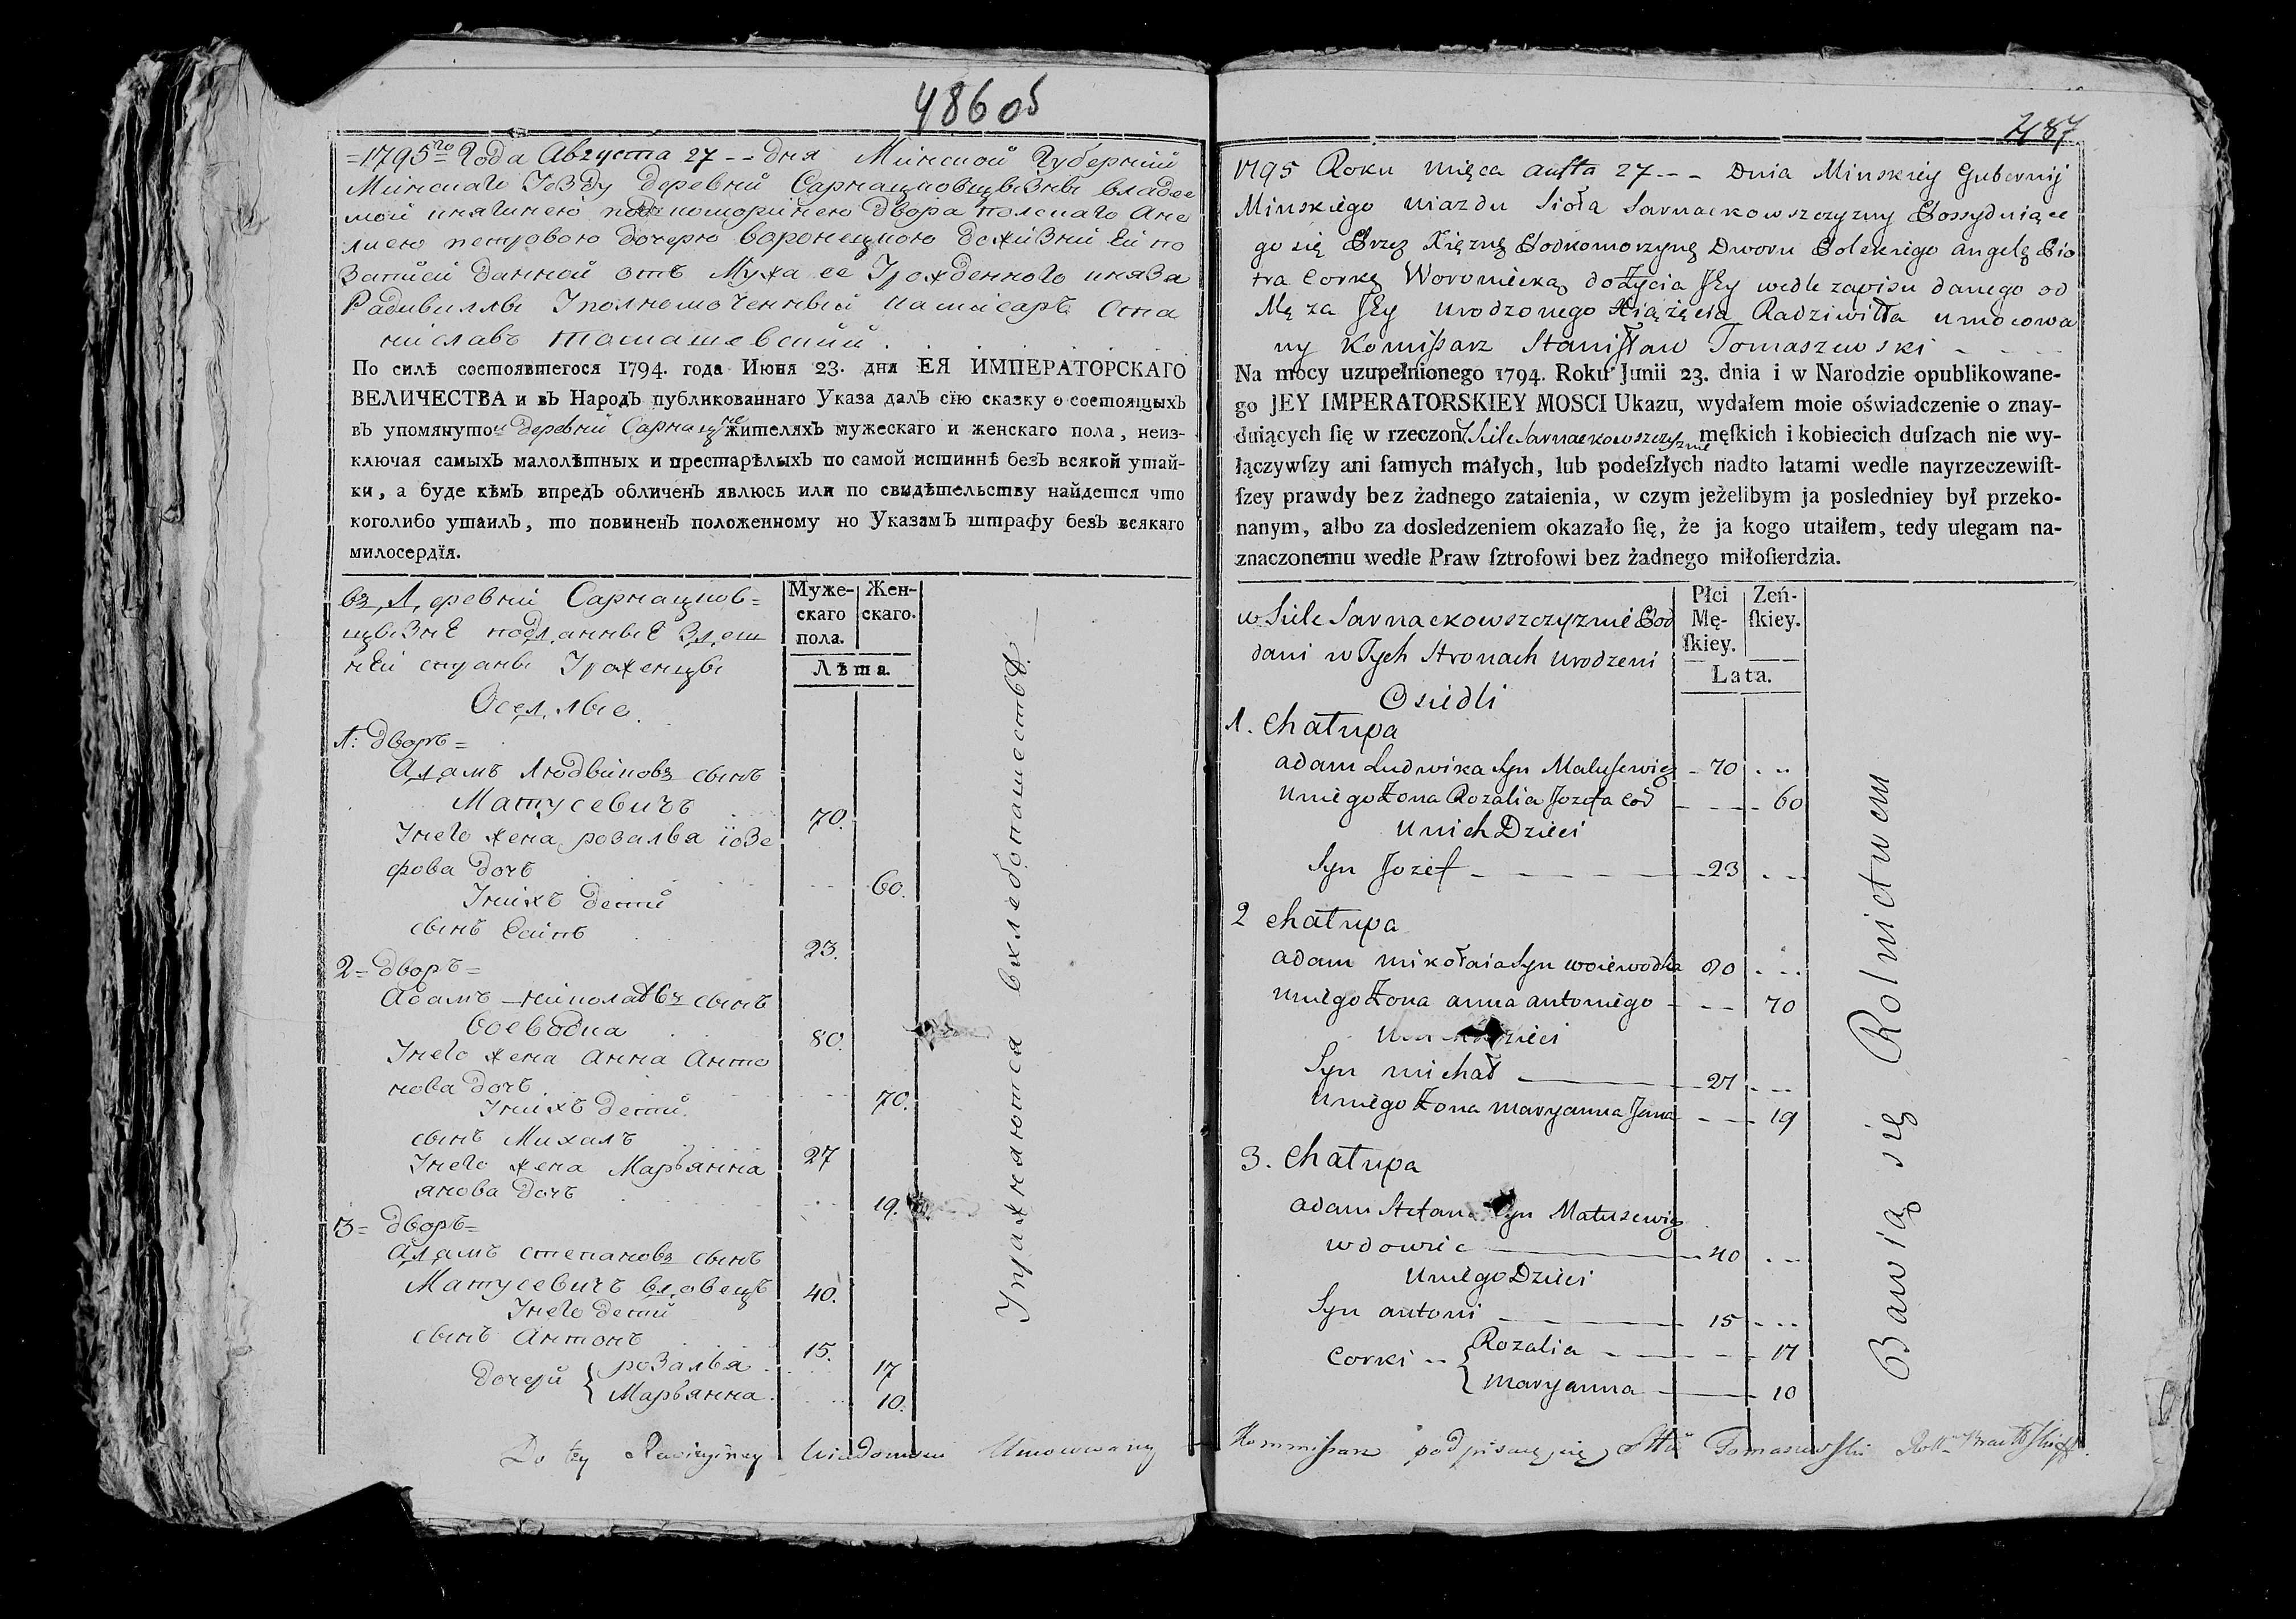 486 об
=1795го= Года Августа 27 -- дня Минской Губернии
Минскаго Уезду деревни Сарнацковщызны владее
мой княгинею подкоморинею двора полскаго Анe
лиею петровою дочерю воронецкою дожизни Ей по
записи данной отъ Мужа ее Урожденного князя
Радивиллы Уполномоченный камисаръ Ста
ниславъ томашевский
По силѣ состоявшегося 1794. года Июня 23. дня ЕЯ ИМПЕРАТОРСКАГО
ВЕЛИЧЕСТВА и въ Народъ публикованнаго Указа далъ сїю сказку о состоящыхъ
въ упомянутой деревни Сарнацк жителяхъ мужескаго и женскаго пола, неиз-
ключая самыхъ малолѣтныхъ и престарѣлыхъ по самой истиннѣ безъ всякой утай-
ки, а буде кѣмъ впредъ обличенъ явлюсь или по свидѣтельству найдется что
коголибо утаилъ, то повиненъ положенному по Указамъ штрафу безъ всякаго
милосердїя.
въ Деревни Сарнацков=
щызнѣ подданные здеш
ней страны Уроженцы
Муже-
скаго
пола.
Жен-
скаго.
Лѣта.
Оседлые
1: дворъ=
Адамъ Людвиковъ сынъ
Матусевичъ 70.
Унего жена розалья iозе
фова дочъ 60.
Унихъ дети
сынъ 23.
2= дворъ=
Адамъ миколаевъ сынъ
воеводка 80.
Унего жена Анна Анто
нова дочъ 70.
Унихъ дети
сынъ Михалъ 27
Унего жена Марьянна
янова дочъ 19.
3= дворъ=
Адамъ степановъ сынъ
Матусевичъ вдовецъ 40.
Унего дети
сынъ Антонъ 15.
дочери { розалья 17
Марьянна 10.
Упражняются вхлебопашестве
487
1795 Roku mięca Austa 27 -- Dnia Minskiey Gubernij
Minskiego ujazdu Sioła Sarnackowszczyzny Possyduiące
go się Przez Xiężnę Podkomorzynę Dworu Polskiego Angelę Pio
tra Corkę Woroniecką dożycia JEy wedle zapisu danego od
Męża JEy urodzonego Xiążęcia Radziwiłła umocowa
ny Komißarz Stanisław Tomaszewski
Na mocy uzupełnionego 1794. Roku Junii 23. dnia i w Narodzie opublikowane-
go JEY IMPERATORSKIEY MOSCI Ukazu, wydałem moie oświadczenie o znay-
duiących ſię w rzeczon Siele Sarnackowszczyznie męſkich i kobiecich duſzach nie wy-
łączywſzy ani ſamych małych, lub podeſzłych nadto latami wedle nayrzeczewiſt-
ſzey prawdy bez żadnego zataienia, w czym jeżelibym ja posledniey był przeko-
nanym, albo za dosledzeniem okazało ſię, że ja kogo utaiłem, tedy ulegam na-
znaczonemu wedle Praw ſztrofowi bez żadnego miłoſierdzia.
w Siele Sarnackowszczyznie Pod
dani w Tych Stronach urodzeni
Płci
Mę-
ſkiey.
Zeń-
ſkiey.
Lata.
Osiedli
1. Chałupa
Adam Ludwika Syn Matusewicz 70
uniego Żona Rozalia Jozefa Cor 60
unich Dzieci
Syn Jozef 23
2 Chałupa
Adam Mikołaia Syn woiewodka 80
uniego Żona Anna Antoniego 70
Dzieci
Syn Michał 27
uniego Żona Maryanna Jana 19
3. Chałupa
Adam Stefana Syn Matusewicz
wdowiec 40
uniego Dzieci
Syn Antoni 15
Corki { Rozalia 17
Maryanna 10
Bawią się Rolnictwem
Do tey Rewizyiney Umocowany Kommißarz podpisuję się Tomaszewski